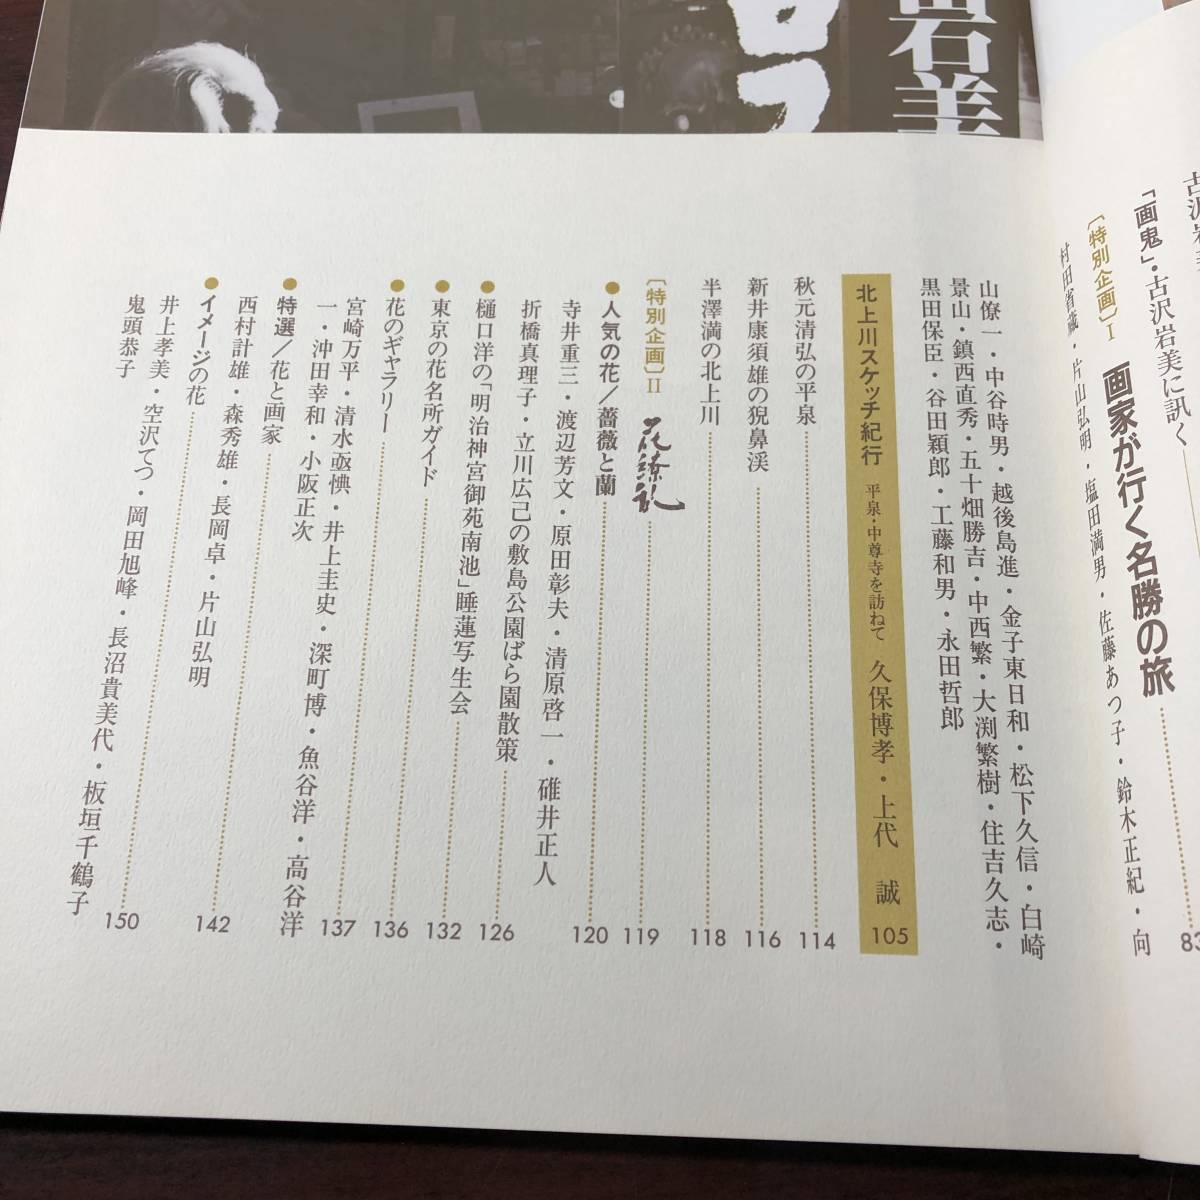 岩美
「画鬼」・古沢岩美に訊く
［特別企画］Ⅰ 画家が行く名勝の旅 83
村田省蔵・片山弘明・塩田満男・佐藤あつ子・鈴木正紀・向
山僚一・中谷時男・越後島進・金子東日和・松下久信・白崎
景山・鎮西直秀・五十畑勝吉・中西繁・大渕繁樹・住吉久志・
黒田保臣・谷田穎郎・工藤和男・永田哲郎
北上川スケッチ紀行 平泉・中尊寺を訪ねて 久保博孝・上代 誠 105
秋元清弘の平泉 114
新井康須雄の猊鼻渓 116
半澤満の北上川 118
［特別企画］Ⅱ 花繚乱 119
●人気の花／薔薇と蘭 120
寺井重三・渡辺芳文・原田彰夫・清原啓一・碓井正人
折橋真理子・立川広己の敷島公園ばら園散策 126
●樋口洋の「明治神宮御苑南池」睡蓮写生会
●東京の花名所ガイド 132
●花のギャラリー 136
宮崎万平・清水亟怏・井上圭史・深町博・魚谷洋・高谷洋
一・沖田幸和・小阪正次 137
●特選／花と画家
西村計雄・森秀雄・長岡卓・片山弘明
●イメージの花 142
井上孝美・空沢てつ・岡田旭峰・長沼貴美代・板垣千鶴子
鬼頭恭子 150